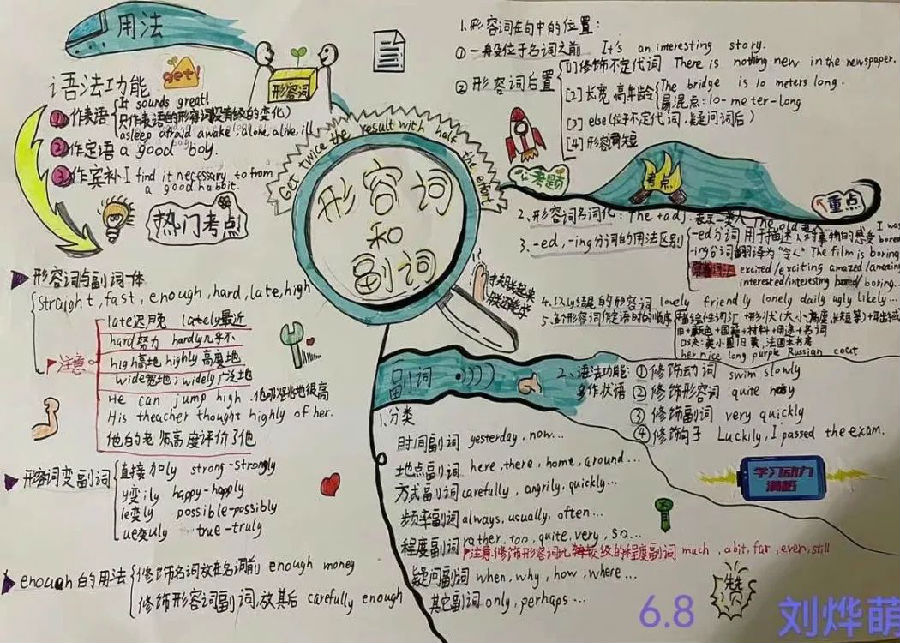 用法
语法功能
get!
形容词
①作表语
It sounds great!
只作表语的形容词(没有级的变化)
asleep afraid awake alone, alike, ill
②作定语 a good boy.
③作宾补 I find it necessary to form
a good habbit.
热门考点
Get twice the result with half the effort
形容词
和
副词
1.形容词在句中的位置:
① 一般位于名词之前 It's an interesting story.
② 形容词后置
[1]修饰不定代词 There is nothing new in the newspaper.
[2]长宽高年龄
The bridge is 10 meters long.
易混点:10-meter-long
[3] else(位于不定代词,疑问词后)
[4]形容词短
必考题
考点
重点
2.形容词名词化: The + adj.
3. -ed, -ing分词的用法区别
-ing 翻译为"令人" The film is boring
excited/exciting amazed/amazing
interested/interesting bored/boring...
4.以ly结尾的形容词 lovely friendly lonely daily ugly likely...
her nice long purple Russian coat
形容词与副词一体
straight, fast, enough, hard, late, high
注意
late迟, lately最近
hard努力 hardly几乎不
high高地 highly 高度地
wide宽地; widely广泛地
He can jump high.
His theacher thought highly of her.
他的老师高度评价了他
形容词变副词
直接加ly strong-strongly
y变ily happy-happily
le变ly possible-possibly
ue变uly true-truly
enough的用法
修饰名词放在名词前 enough money
修饰形容词副词,放其后 carefully enough
副词
1.分类
时间副词 yesterday, now...
地点副词 here, there, home, around...
方式副词 carefully, angrily, quickly...
频率副词 always, usually, often...
程度副词 rather, too, quite, very, so...
much, a bit, far, even, still
疑问副词 when, why, how, where...
其它副词 only, perhaps...
2、语法功能:
多作状语
① 修饰动词 swim slowly
② 修饰形容词 quite
③ 修饰副词 very quickly
④ 修饰句子 Luckily, I passed the exam.
学习动力
满格
6.8 刘烨萌